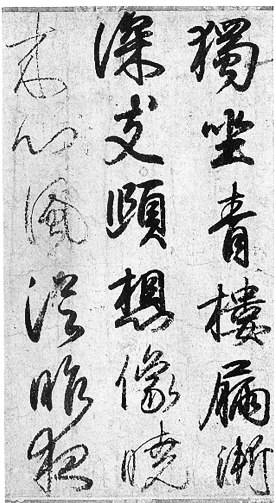 獨坐青樓漏漸
深支頤想像曉
來心風從昨夜